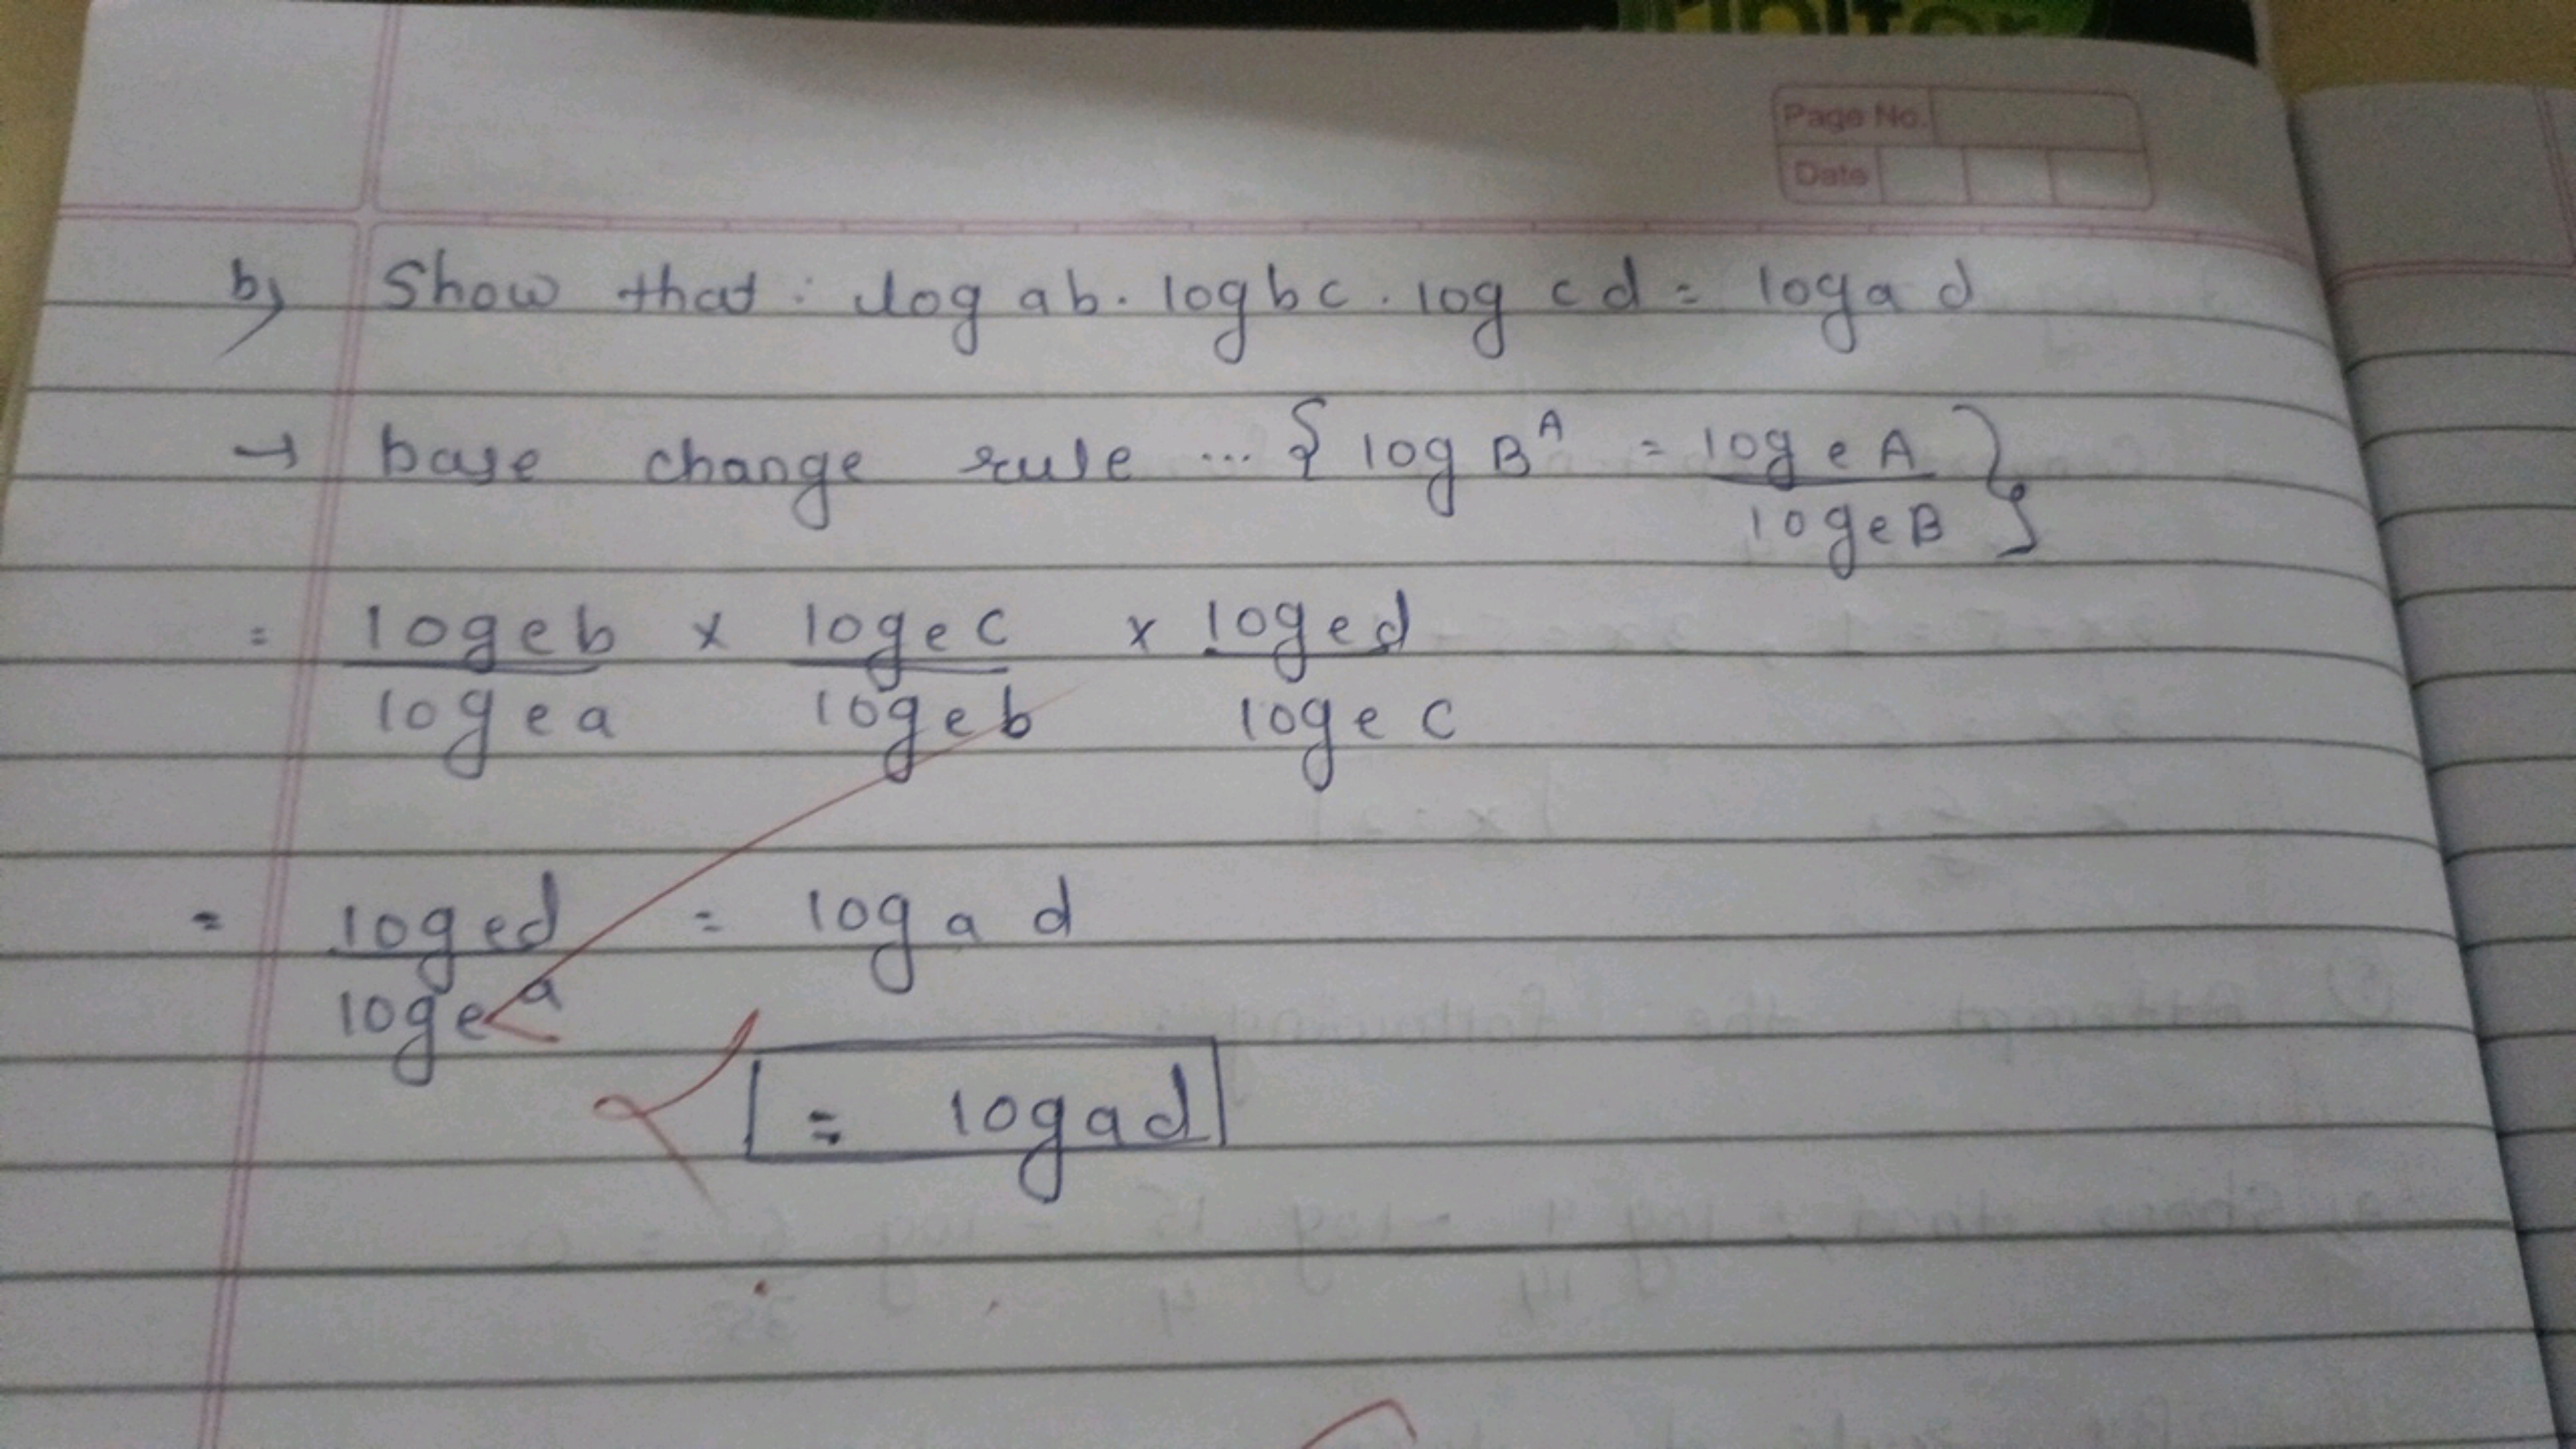 Page No.
Date
b) Show that : log ab . log bc . log cd = log a d
→ base change rule ... { log B^A = log e A / log e B }
= log e b / log e a × log e c / log e b × log e d / log e c
= log e d / log e a = log a d
= log a d